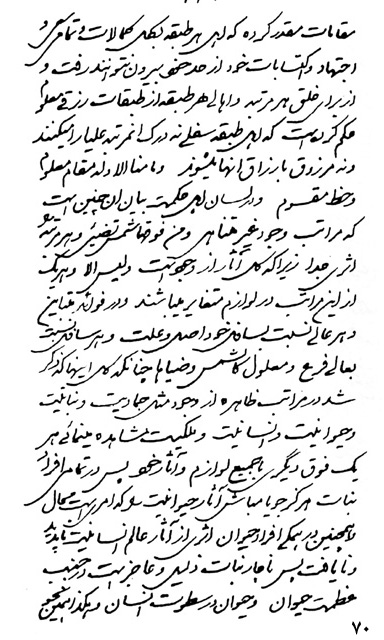 مقامات مقدر کرده که اهل هر طبقه بکل کمالات و تمامی
اجتهاد و اکتسابات خود از حد خود بیرون نتوانند رفت و
از برای خلق هر مرتبه و اهالی هر طبقه از طبقات رزقی معلوم
حکم کرده است که اهل طبقه سفلی نه درک آنمرتبه علیا را میکنند
و نه مرزوق بارزاق آنها میشوند و ما منا الا و له مقام معلوم
و حظ مقسوم و در لسان اهل حکمت بیان آن چنین است
که مراتب وجود غیر متناهی و هر مرتبه
اثری جدا زیرا که کل آثار از وجودیت و لیس الا و هر یک
از این مراتب در لوازم متغایر میباشند و در فوائد متباین
و هر عالی نسبت بسافل خود اصل و علت و هر سافل نسبت
بعالی فرع و معلول کالشمس و ضیاها چنانکه کل اینها که ذکر
شد در مراتب ظاهره از وجود مثل جمادیت و نباتیت
و حیوانیت و انسانیت و ملکیت مشاهده مینمائی هر
یک فوق دیگری با جمیع لوازم و آثار خود پس در تمامی افراد
نبات هرگز جویا مباش آثار حیوانیت را که امری است محال
و همچنین در همگی افراد حیوان اثری از آثار عالم انسانیت ناپدید
و نایافت پس ناچار نبات ذلیل و عاجز است در جنب
عظمت حیوان و حیوان در سطوت انسان و هکذا بهمین نحو
۷۰